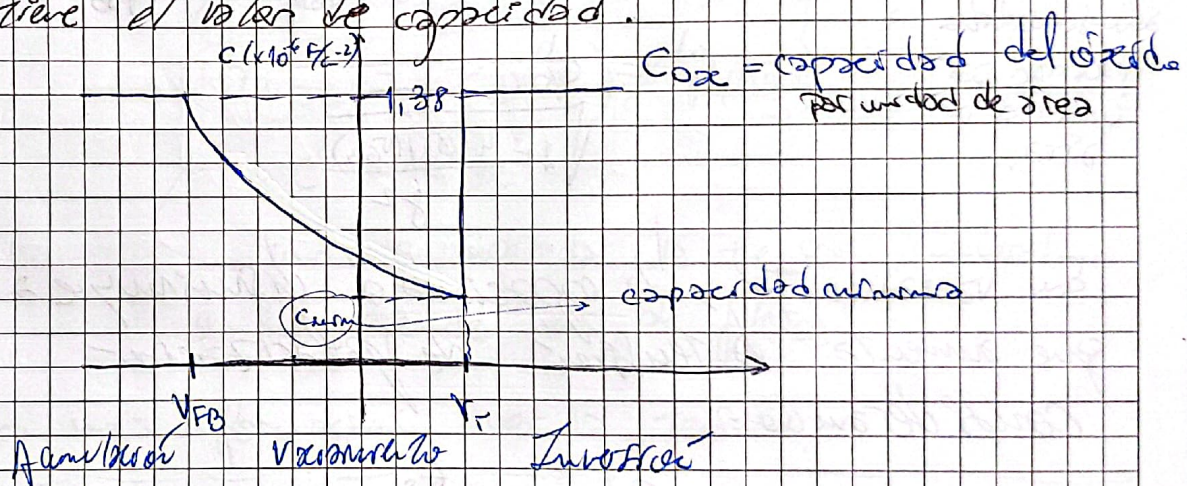 tiene el valor de capacidad.
C (x10⁻⁶ F/c⁻²)
Cox = capacidad del óxido
por unidad de área
1,38
Cmin
capacidad mínima
VFB
VT
Acumulación
Vaciamiento
Inversión